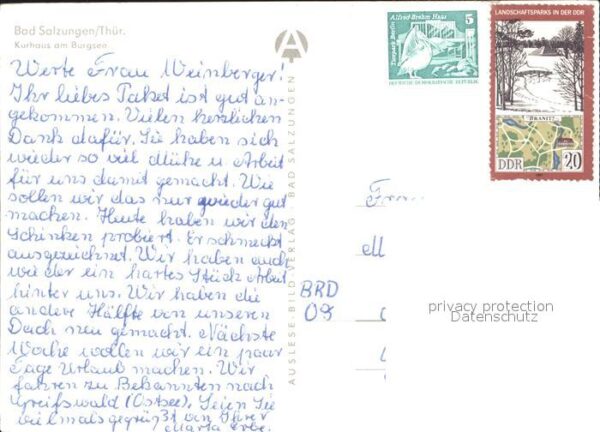 Bad Salzungen/Thür.
Kurhaus am Burgsee.
Werte Frau Weinberger!
Ihr liebes Paket ist gut an-
gekommen. Vielen herzlichen
Dank dafür. Sie haben sich
wieder so viel Mühe u. Arbeit
für uns damit gemacht. Wie
sollen wir das nur wieder gut
machen. Heute haben wir den
Schinken probiert. Er schmeckt
ausgezeichnet. Wir haben auch
wieder ein hartes Stück Arbeit
hinter uns. Wir haben die
andere Hälfte von unseren
Dach neu gemacht. Nächste
Woche wollen wir ein paar
Tage Urlaub machen. Wir
fahren zu Bekannten nach
Greifswald (Ostsee). Seien Sie
vielmals gegrüßt von Ihrer
Marta Erbe.
AUSLESE-BILD-VERLAG BAD SALZUNGEN
Tierpark Berlin
Alfred-Brehm-Haus
5
DEUTSCHE DEMOKRATISCHE REPUBLIK
LANDSCHAFTSPARKS IN DER DDR
BRANITZ
DDR 20
Frau
M
BRD
privacy protection
Datenschutz